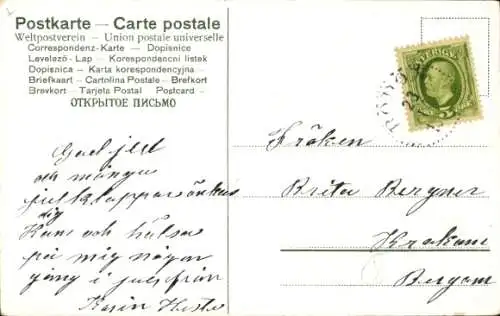 Postkarte — Carte postale
Weltpostverein — Union postale universelle
Correspondenz-Karte — Dopisnice
Levelező-Lap — Korespondencni listek
Dopisnica — Karta korespondencyjna —
Briefkaart — Cartolina Postale — Brefkort
Brevkort — Tarjeta Postal Postcard —
ОТКРЫТОЕ ПИСЬМО
God jul
och många
julklappar önskas
dig
Kom och hälsa
på mig någon
gång i jul från
Karin
SVERIGE
5
Fröken
Brita Bergner